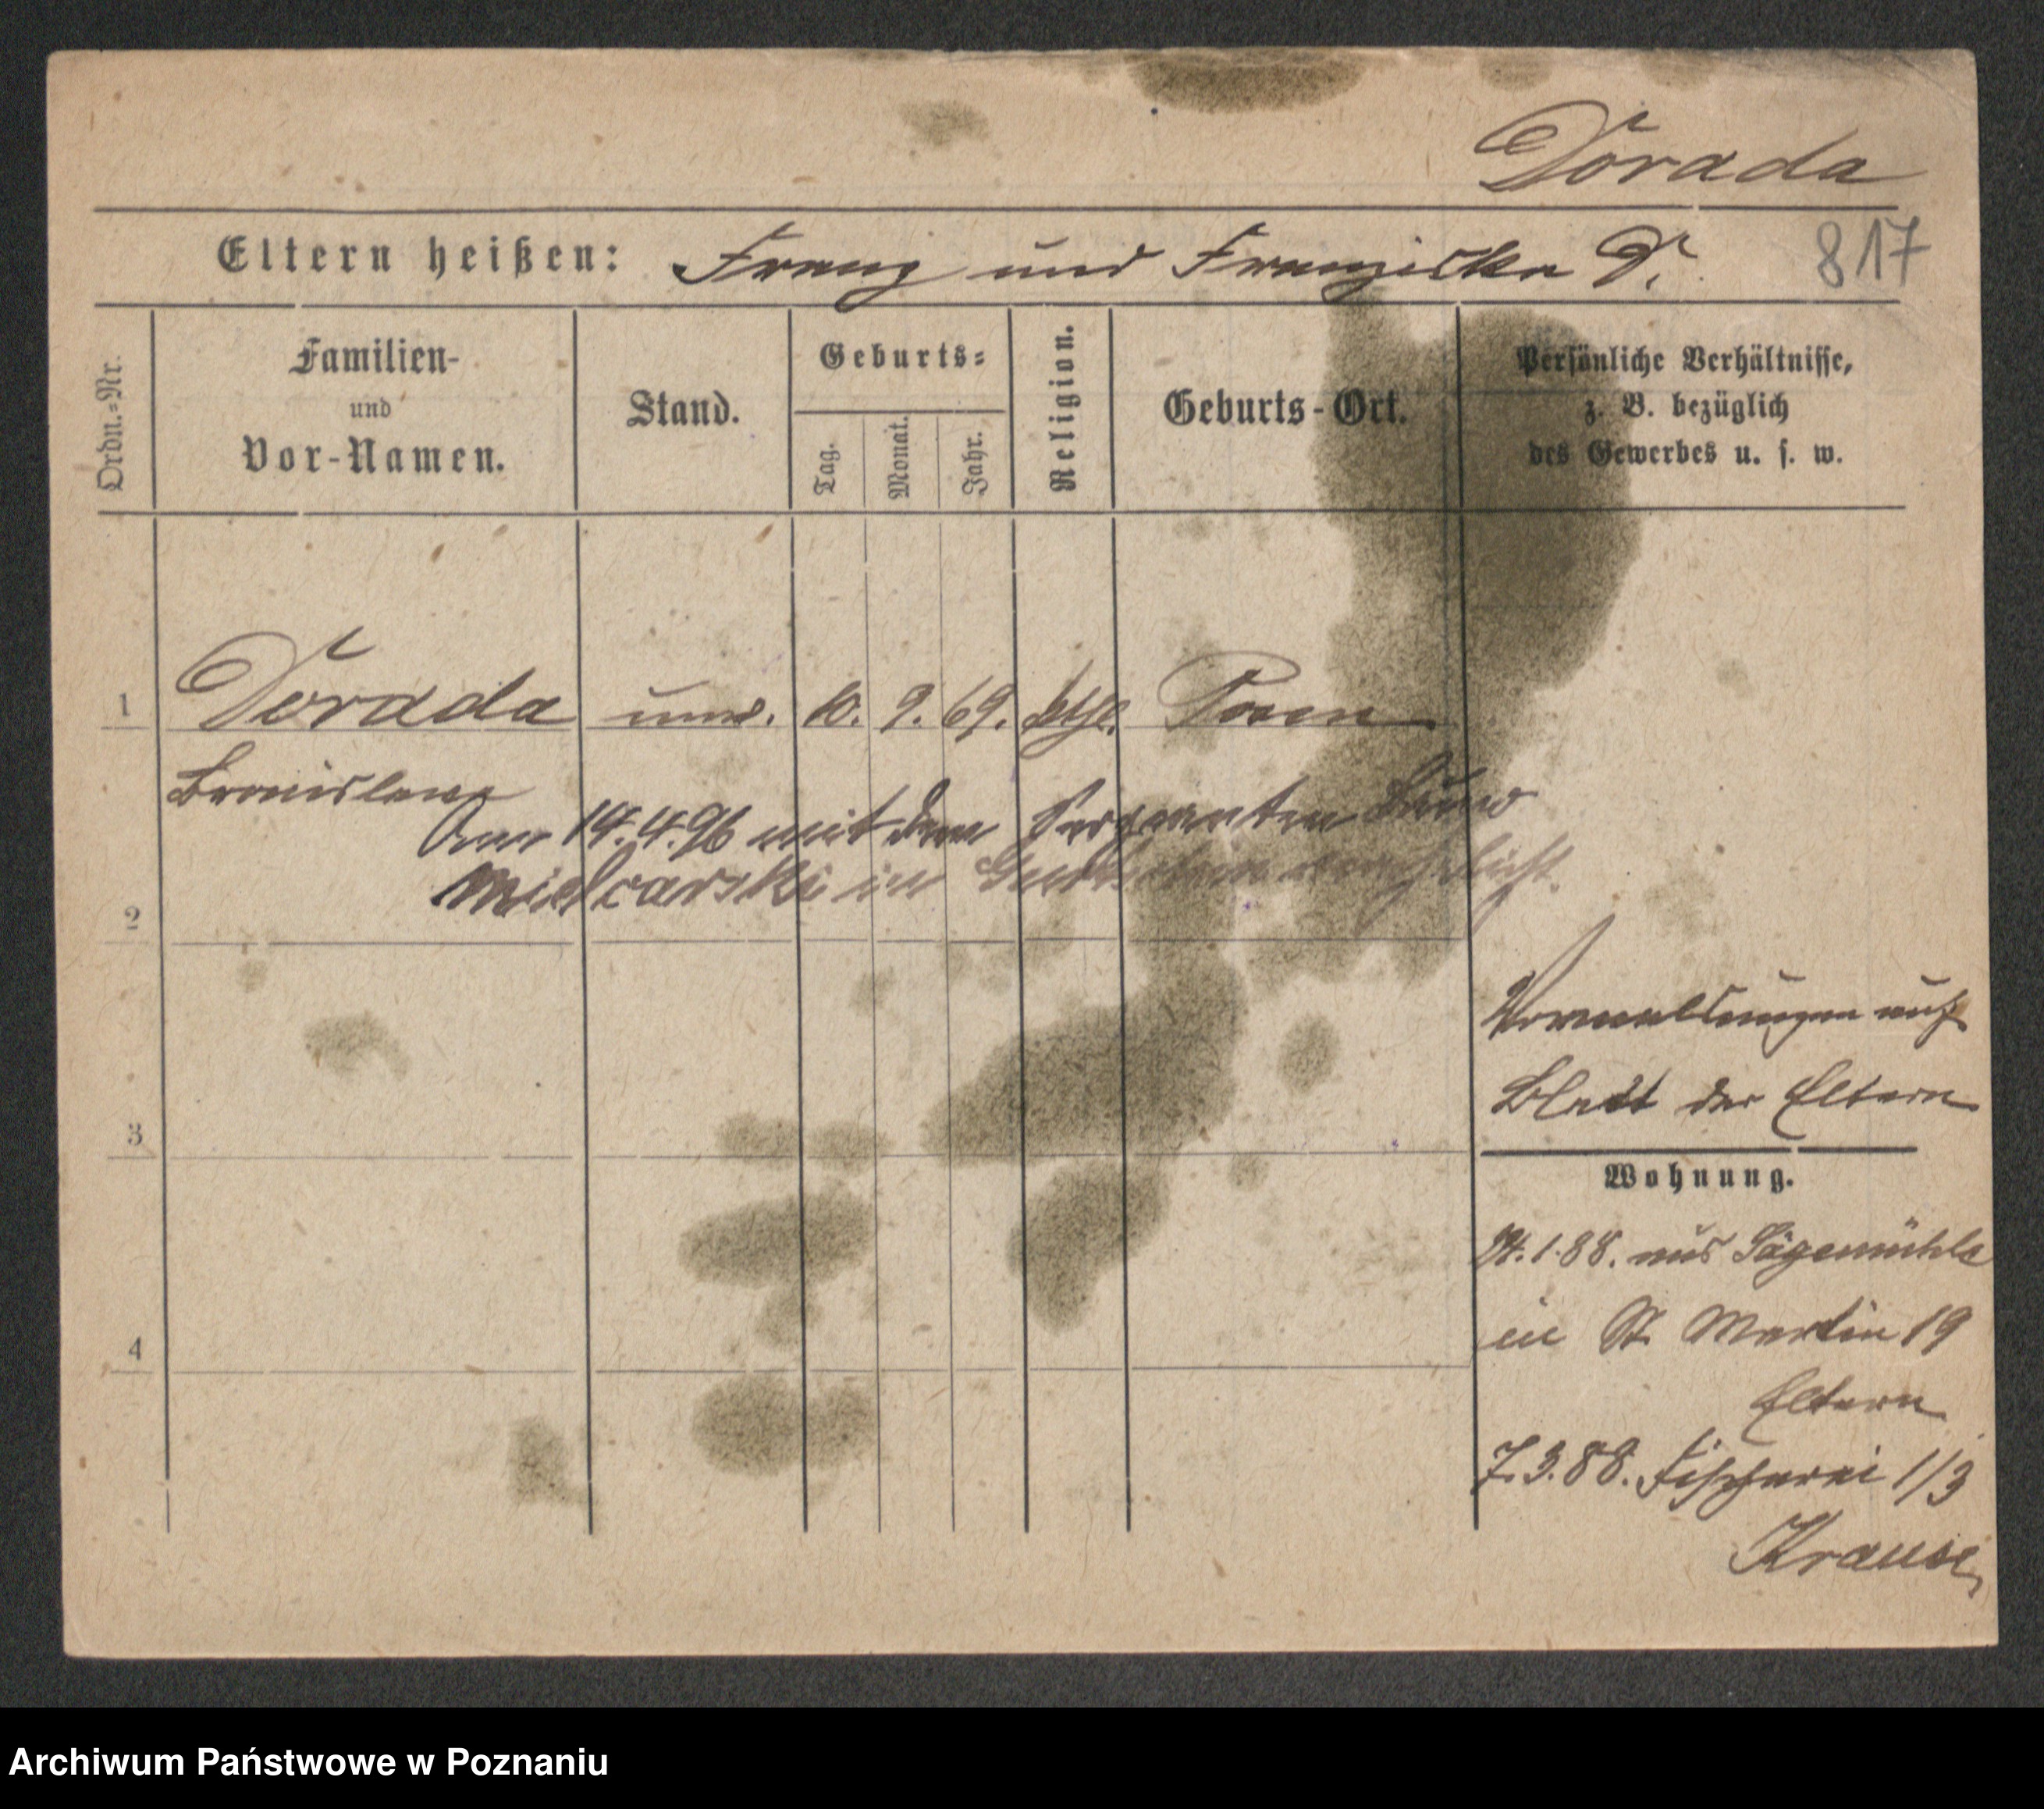 Dorada
Eltern heißen: Franz und Franziska D.
817
Ordn.=Nr.
Familien-
und
Vor-Namen.
Stand.
Geburts=
Tag.
Monat.
Jahr.
Religion.
Geburts-Ort.
Persönliche Verhältnisse,
z. B. bezüglich
des Gewerbes u. s. w.
1 Dorada unv. 10. 9. 69. kthl. Posen
Bronislawa
Am 14.4.96 mit dem Sergeanten
Mielcarski in verehelicht.
2
Vormeldungen auf
Blatt der Eltern
3
Wohnung.
1.88. aus Sägemühle
in St. Martin 19
4
Eltern
7.3.88. Fischerei 1/3
Krause
Archiwum Państwowe w Poznaniu